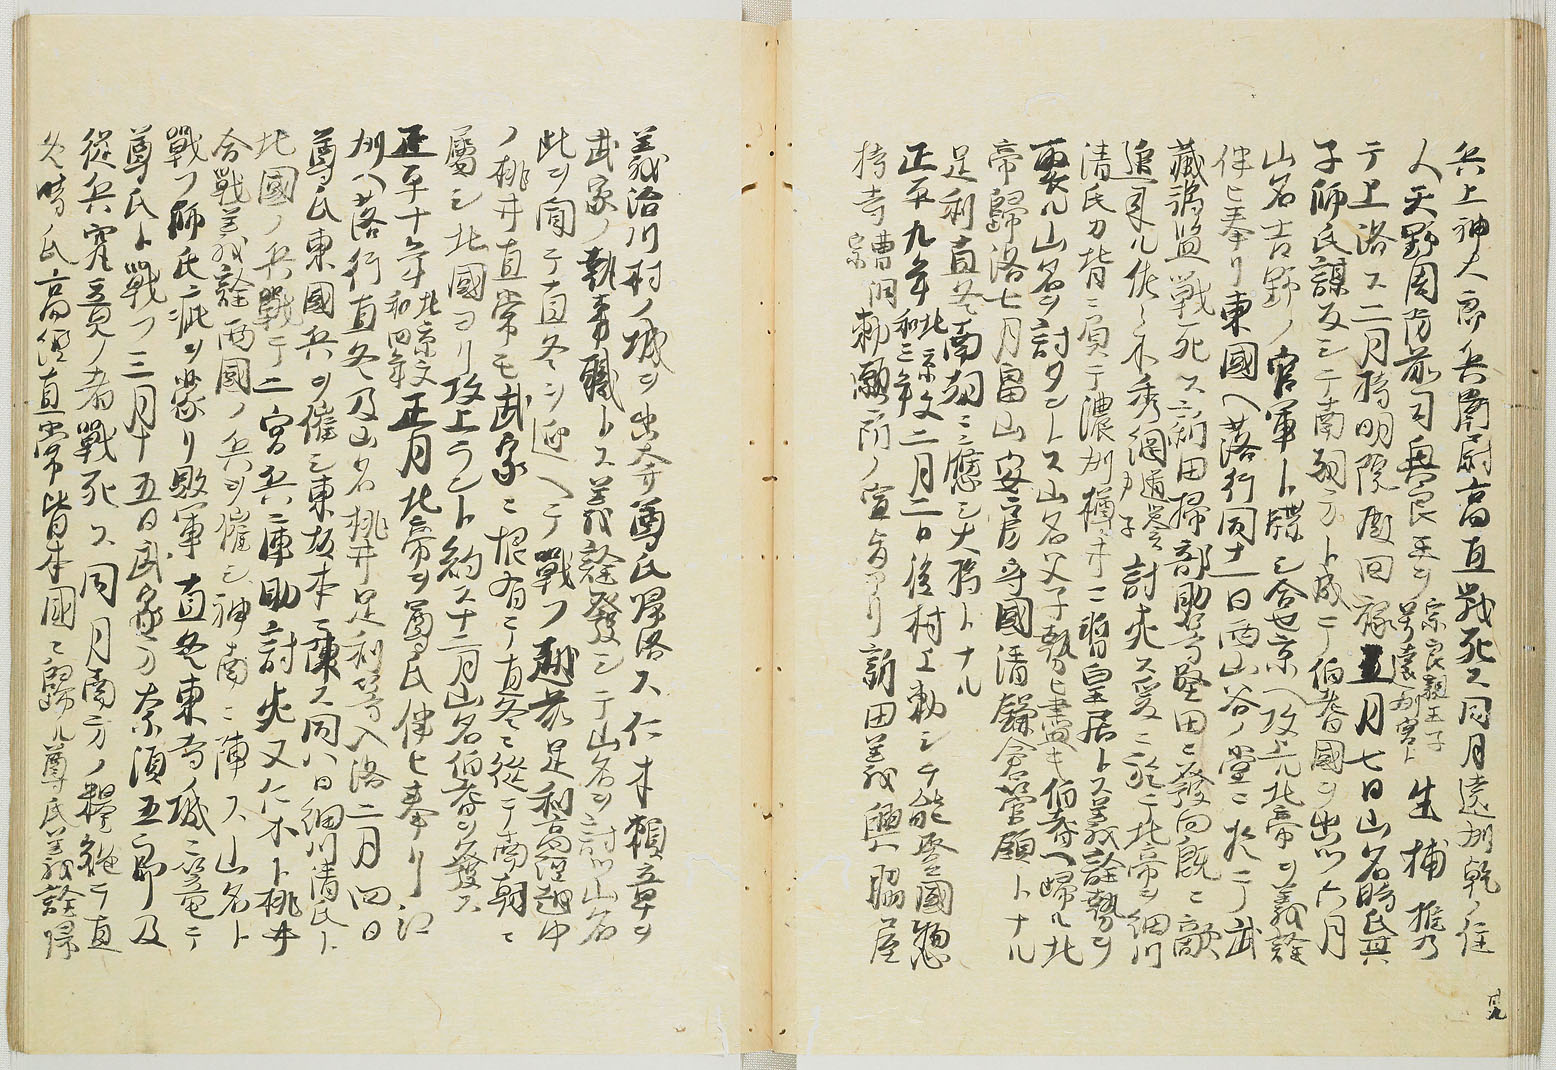 兵上神人家兵衛尉高直戦死ス同月遠州乾ノ住
人天野周防前司興良王ヲ宗良親王子号遠州宮ト生捕携乃
テ上洛ス二月持明院廻回禄五月七日山名時氏其
子師氏謀反シテ南朝方ト成テ伯耆國ヲ出ツ六月
山名吉野ノ官軍ト牒シ合セ京ヘ攻上ル北帝ヲ義詮
伴ヒ奉リ東國ヘ落行同十一日西山谷ノ堂ニ於テ武
蔵将監戦死ス新田掃部助等堅田ニ發向既ニ敵
追来ル佐々木秀綱道誉カ子討死ス爰ニ於テ北帝ヲ細川
清氏カ背ニ負テ濃州樽井ニ暫皇居トス義詮勢ヲ
要ル山名ヲ討タントス山名父子勢ヒ盡キ伯耆ヘ帰ル北
帝歸洛七月畠山安房守國清鎌倉管領トナル
足利直冬南朝ニ應シ大将トナル
正平九年北京文和三年二月二日後村上勅シテ能登國惣
持寺曹洞宗勅願所ノ宣旨アリ新田義興脇屋
義治川村ノ城ヲ出奔尊氏帰洛ス仁木頼章ヲ
武家ノ執事職トス義詮發シテ山名ヲ討ツ山名
此ヲ聞テ直冬ヲ迎ヘテ戦フ越前足利高経越中
ノ桃井直常モ武家ニ恨有テ直冬ニ從テ南朝ニ
屬シ北國ヨリ攻上ラント約ス十二月山名伯耆ヲ發ス
正平十年北京文和四年正月北帝ヲ尊氏伴ヒ奉リ江
州ヘ落行直冬及山名桃井足利等入洛二月四日
尊氏東國兵ヲ催シ東坂本ニ陳ス同八日細川清氏ト
北國ノ兵戦テ二宮兵庫助討死又仁木ト桃井
合戦義詮西國ノ兵ヲ催シ神南ニ陣ス山名ト
戦フ師氏疵ヲ蒙リ敗軍直冬東寺ノ城ニ篭テ
尊氏ト戦フ三月十五日武家方奈須五郎及
從兵究竟ノ者戦死ス同月南方ノ糧絶テ直
冬時氏高経直常皆本國ニ歸ル尊氏義詮帰
廿九